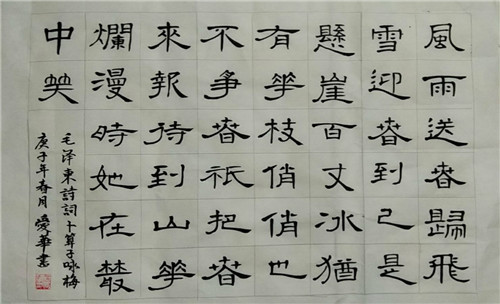 風雨送春歸飛
雪迎春到已是
懸崖百丈冰猶
有華枝俏俏也
不爭春祇把春
來報待到山華
爛漫時她在叢
中笑
毛泽東詩詞卜算子咏梅
庚子年春月愛華書